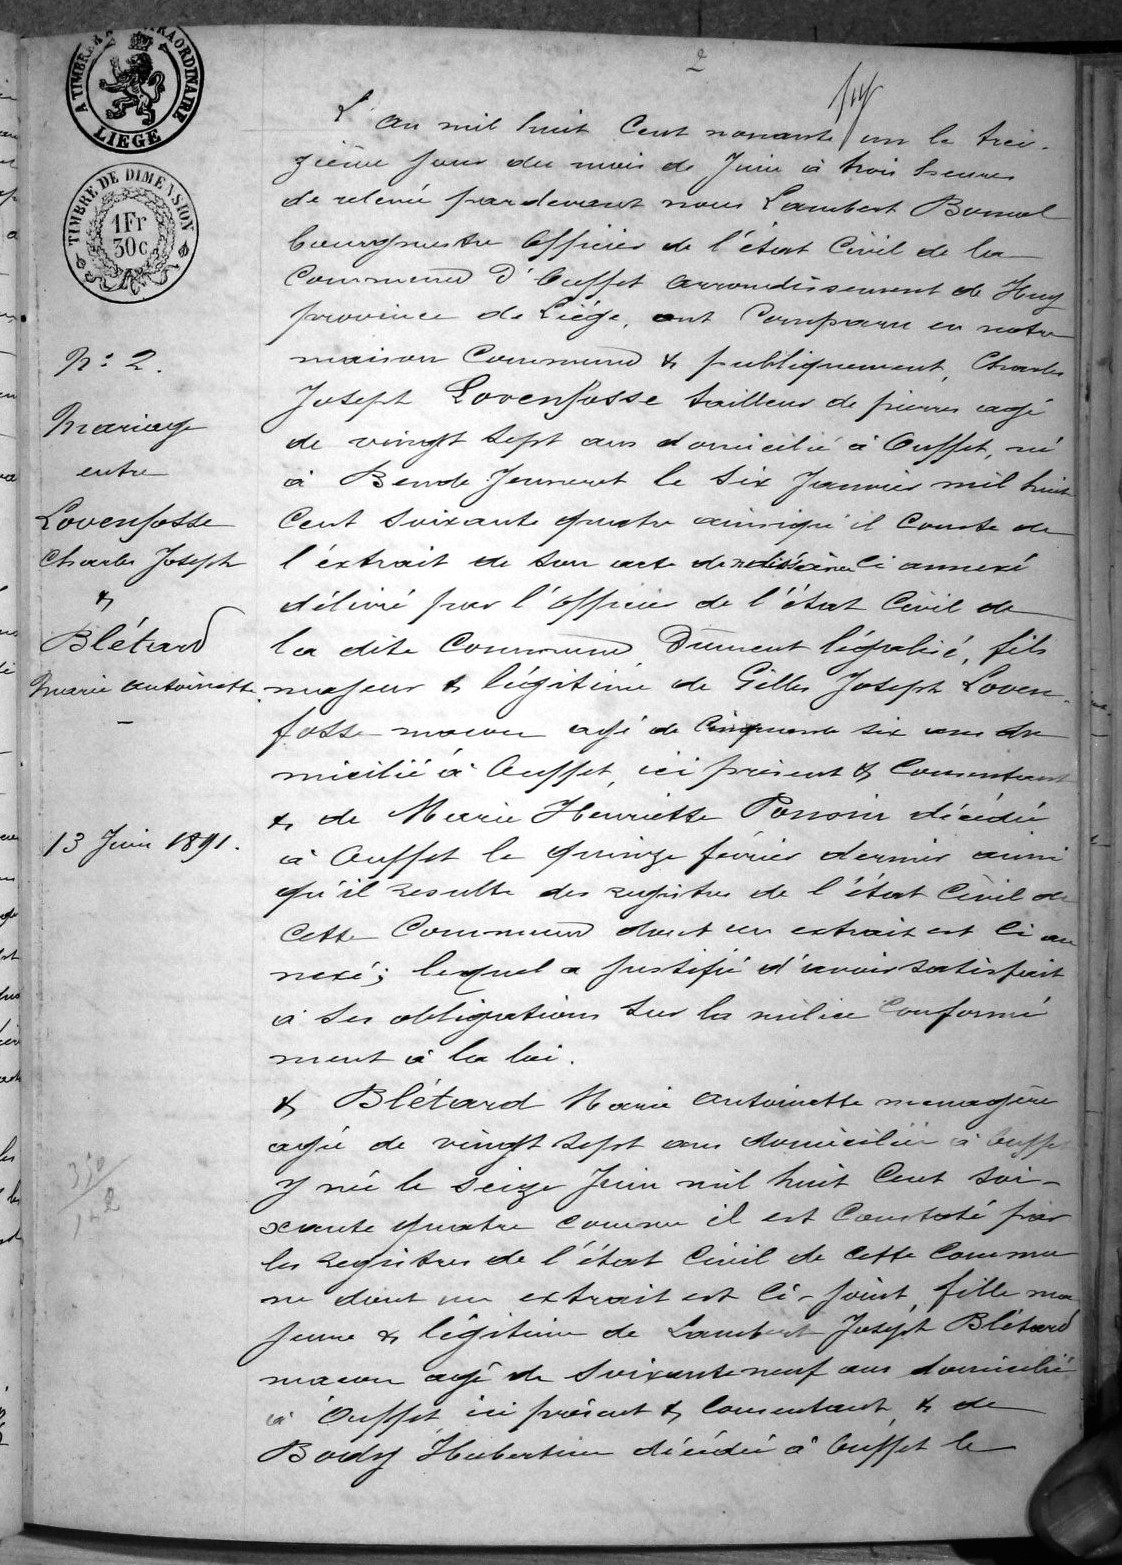 A TIMBRER EXTRAORDINAIRE
LIEGE
TIMBRE DE DIMENSION
1Fr
30c
2
N: 2.
Mariage
entre
Lovenfosse
Charles Joseph
&
Blétard
Marie Antoinette
13 Juin 1891.
L'an mil huit Cent nonante un le trei-
zième jour du mois de Juin à trois heures
de relevée pardevant nous Lambert
bourgmestre officier de l'état Civil de la
Commune d'Ouffet arrondissement de Huy
province de Liége, ont Comparu en notre
maison Commune & publiquement, Charles
Joseph Lovenfosse tailleur de pierres agé
de vingt sept ans domicilié à Ouffet, né
à Bende Jenneret le six Janvier mil huit
Cent soixante quatre ainsiqu'il Conste de
l'éxtrait de son acte de naissance Ci annexé
délivré par l'officier de l'état Civil de
la dite Commune Dument légalisé, fils
majeur & légitime de Gilles Joseph Loven-
fosse macon agé de Cinquante six ans do
micilié à Ouffet, ici présent & Consentant
& de Marie Henriette décédée
à Ouffet le quinze février dernier ainsi
qu'il resulte des registres de l'état Civil de
Cette Commune dont un extrait est Ci an
nexé; lequel a justifié d'avoir satisfait
à ses obligations sur la milice Conformé
ment à la loi.
& Blétard Marie Antoinette menagère
agée de vingt sept ans domiciliée à Ouffet
y née le seize Juin mil huit Cent soi-
xante quatre comme il est Constaté par
les registres de l'état Civil de Cette Commu
ne dont un extrait est Ci-joint, fille ma
jeure & légitime de Lambert Joseph Blétard
macon agé de soixante neuf ans domicilié
à Ouffet, ici présent & Consentant, & de
Body Hubertine décédée à Ouffet le